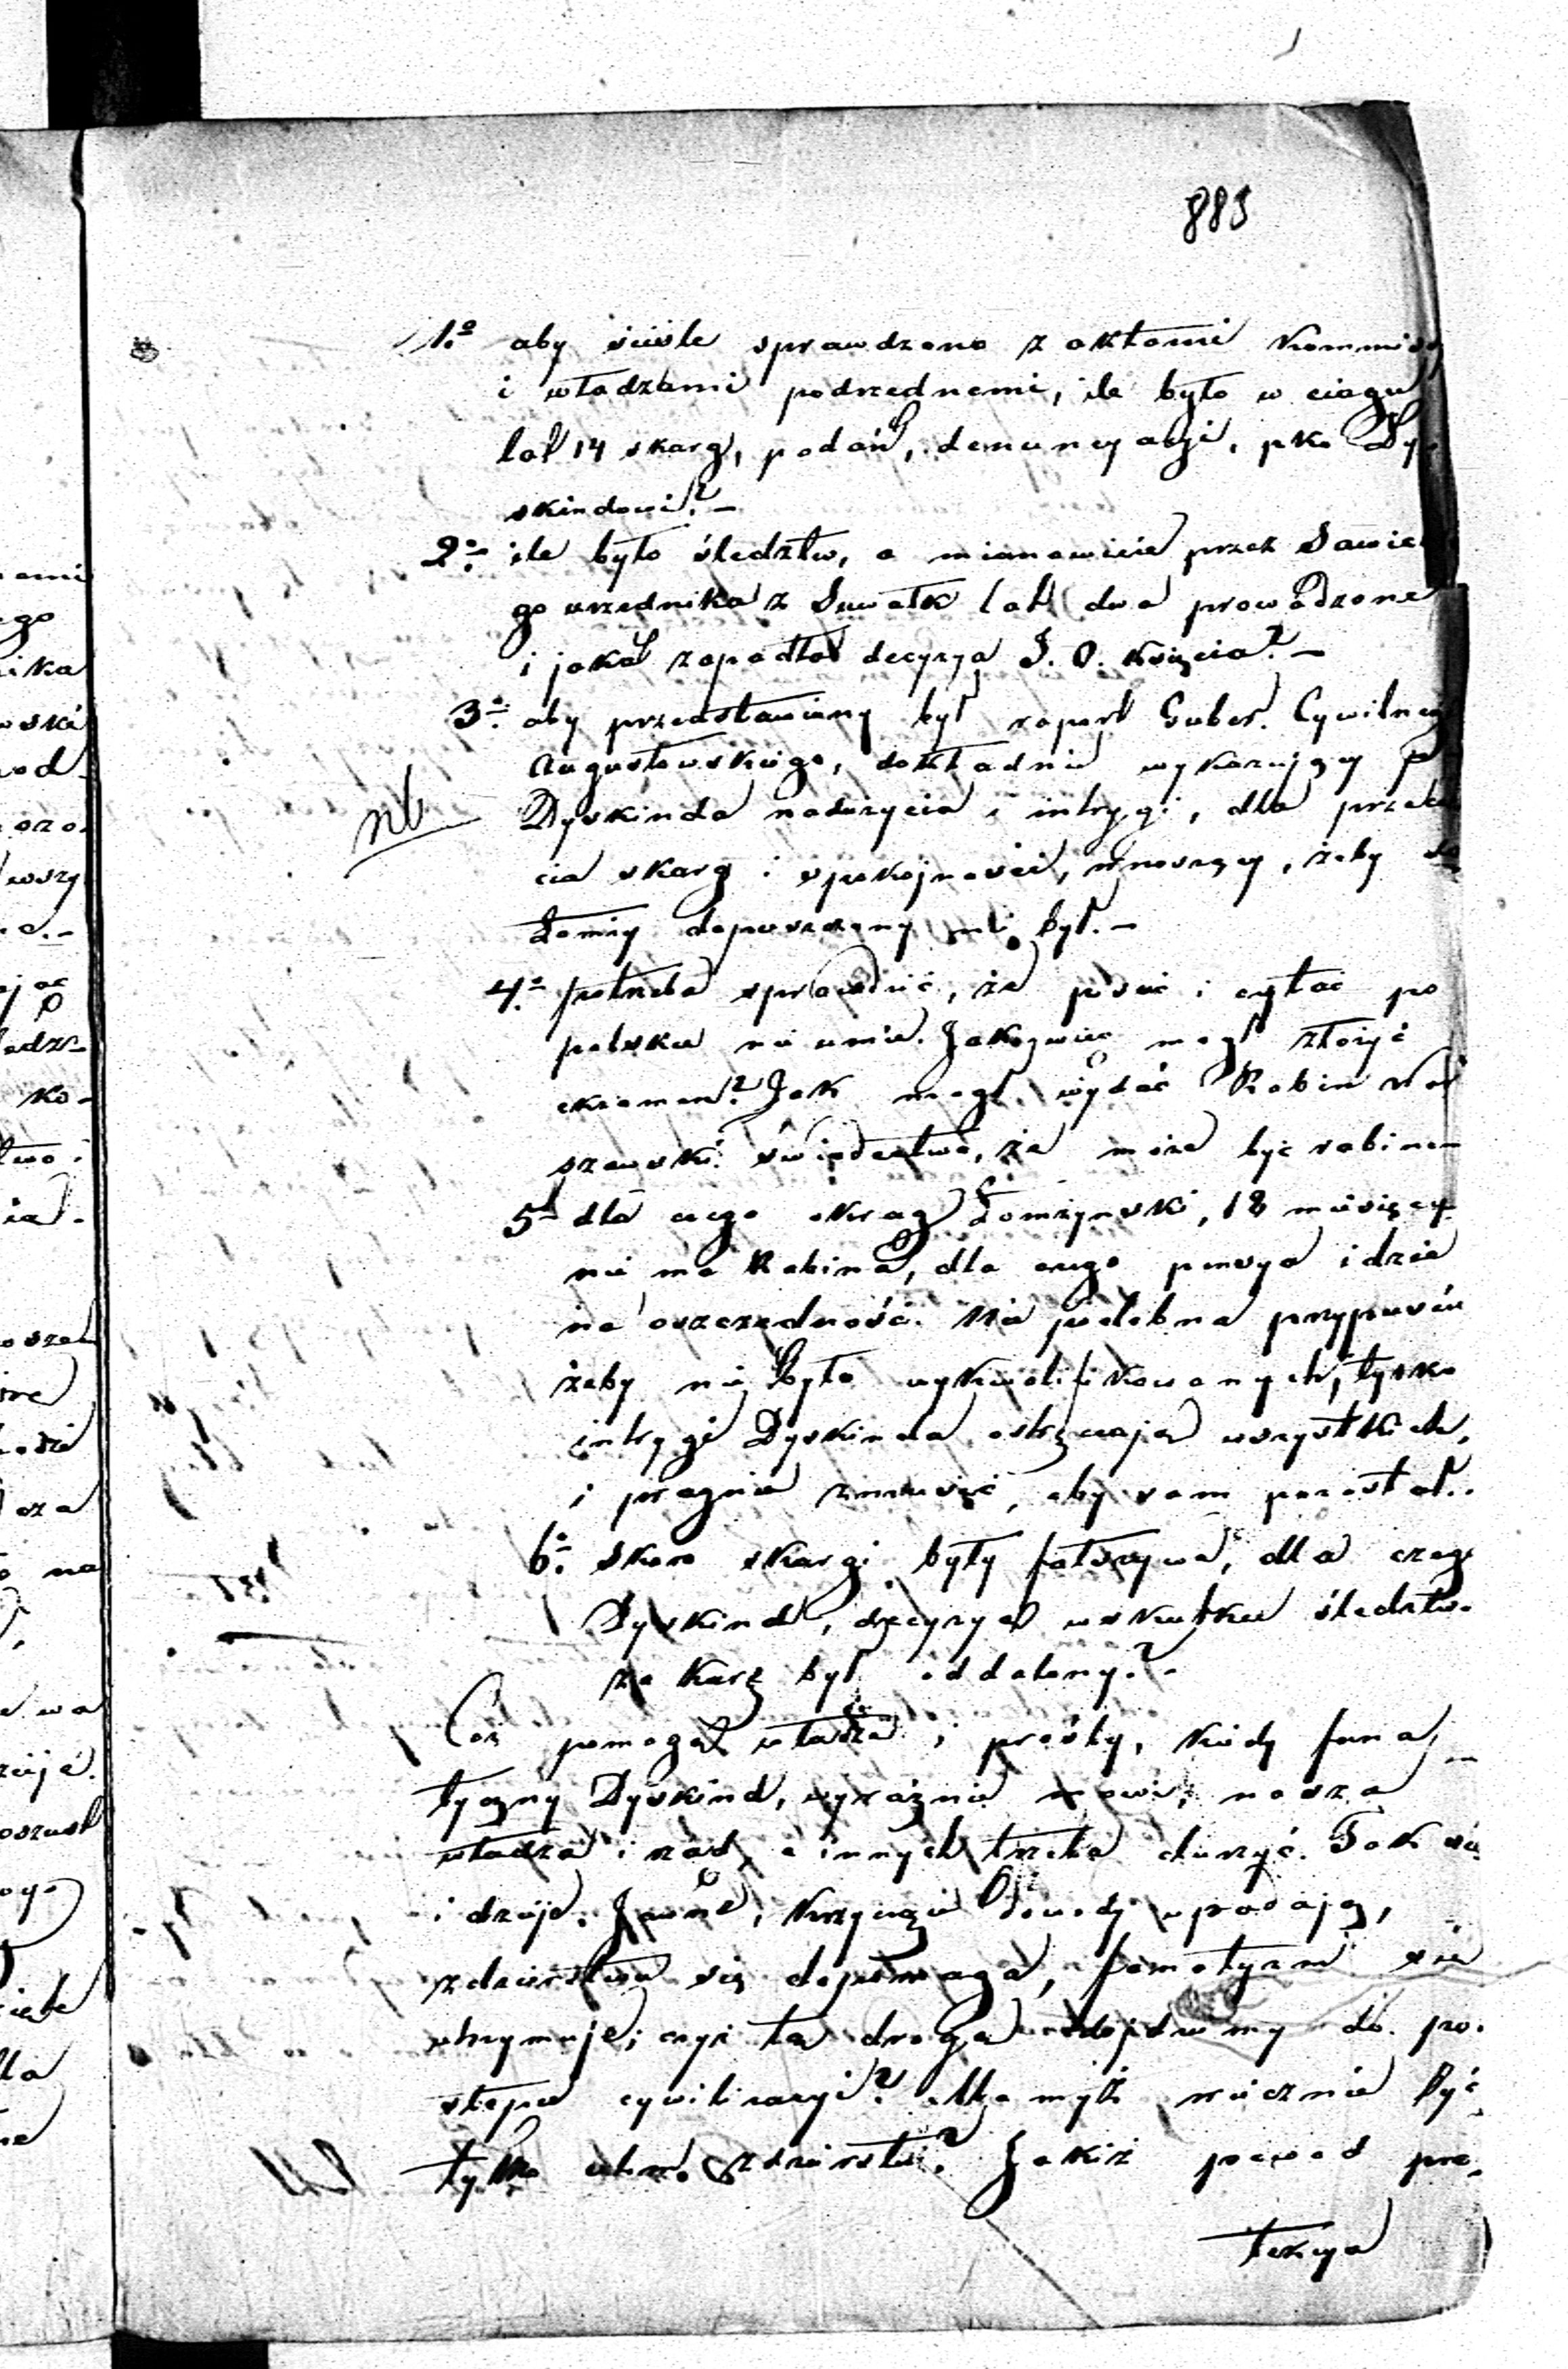 883
1º aby ściśle sprawdzono z aktami Kommissy
i władzami podrzędnemi, ile było w ciągu
lat 14 skarg, podań, denuncyacji, pko Dy-
skindowi? –
2º ile było śledztw, a mianowicie przez
go urzędnika z Suwałk lat dwa prowadzone
i jaka zapadła decyzya J. O. Księcia? –
3º aby przedstawiony był raport Guber. Cywilneg
Augustowskiego, dokładnie wykazujący
nb Dyskinda nadużycia i intrygi, dla przecię
cia skarg i spokojności, wnoszący, żeby do
Łomży dopuszczony nie był. –
4º potrzeba sprawdzić, że pisać i czytać po
polsku nie umie. Jakże więc mógł złożyć
examen? Jak mógł wydać Rabin War
szawski świadectwo, że może być rabinem
5º dla czego okrąg Łomżyński, 18 miesięcy
nie ma Rabina, dla czego pensya idzie
na oszczędność. Nie podobna przypuścić
żeby nie było wykwalifikowanych, tylko
intrygi Dyskinda wszystkich,
i pragnie zmusić, aby sam pozostał.
6º Skoro skargi były fałszywe, dla czego
Dyskind, decyzyą wskutku śledztw
za karę był oddalony? –
Cóż pomogą władze i prośby, kiedy fana-
tyczny Dyskind, wyraźnie mówi; nasza
władza i rząd, a innych trzeba durzyć. Tak się
i dzieje. Jawne, krzyczące dowody upadają,
zdzierstwu się dopomaga, fanatyzm się
utrzymuje; czyż tą drogą dojdziemy do po-
stępu cywilizacyi? Ma myż wiecznie być
tylko zdzierstw? Jakiż powód pro-
tekcya